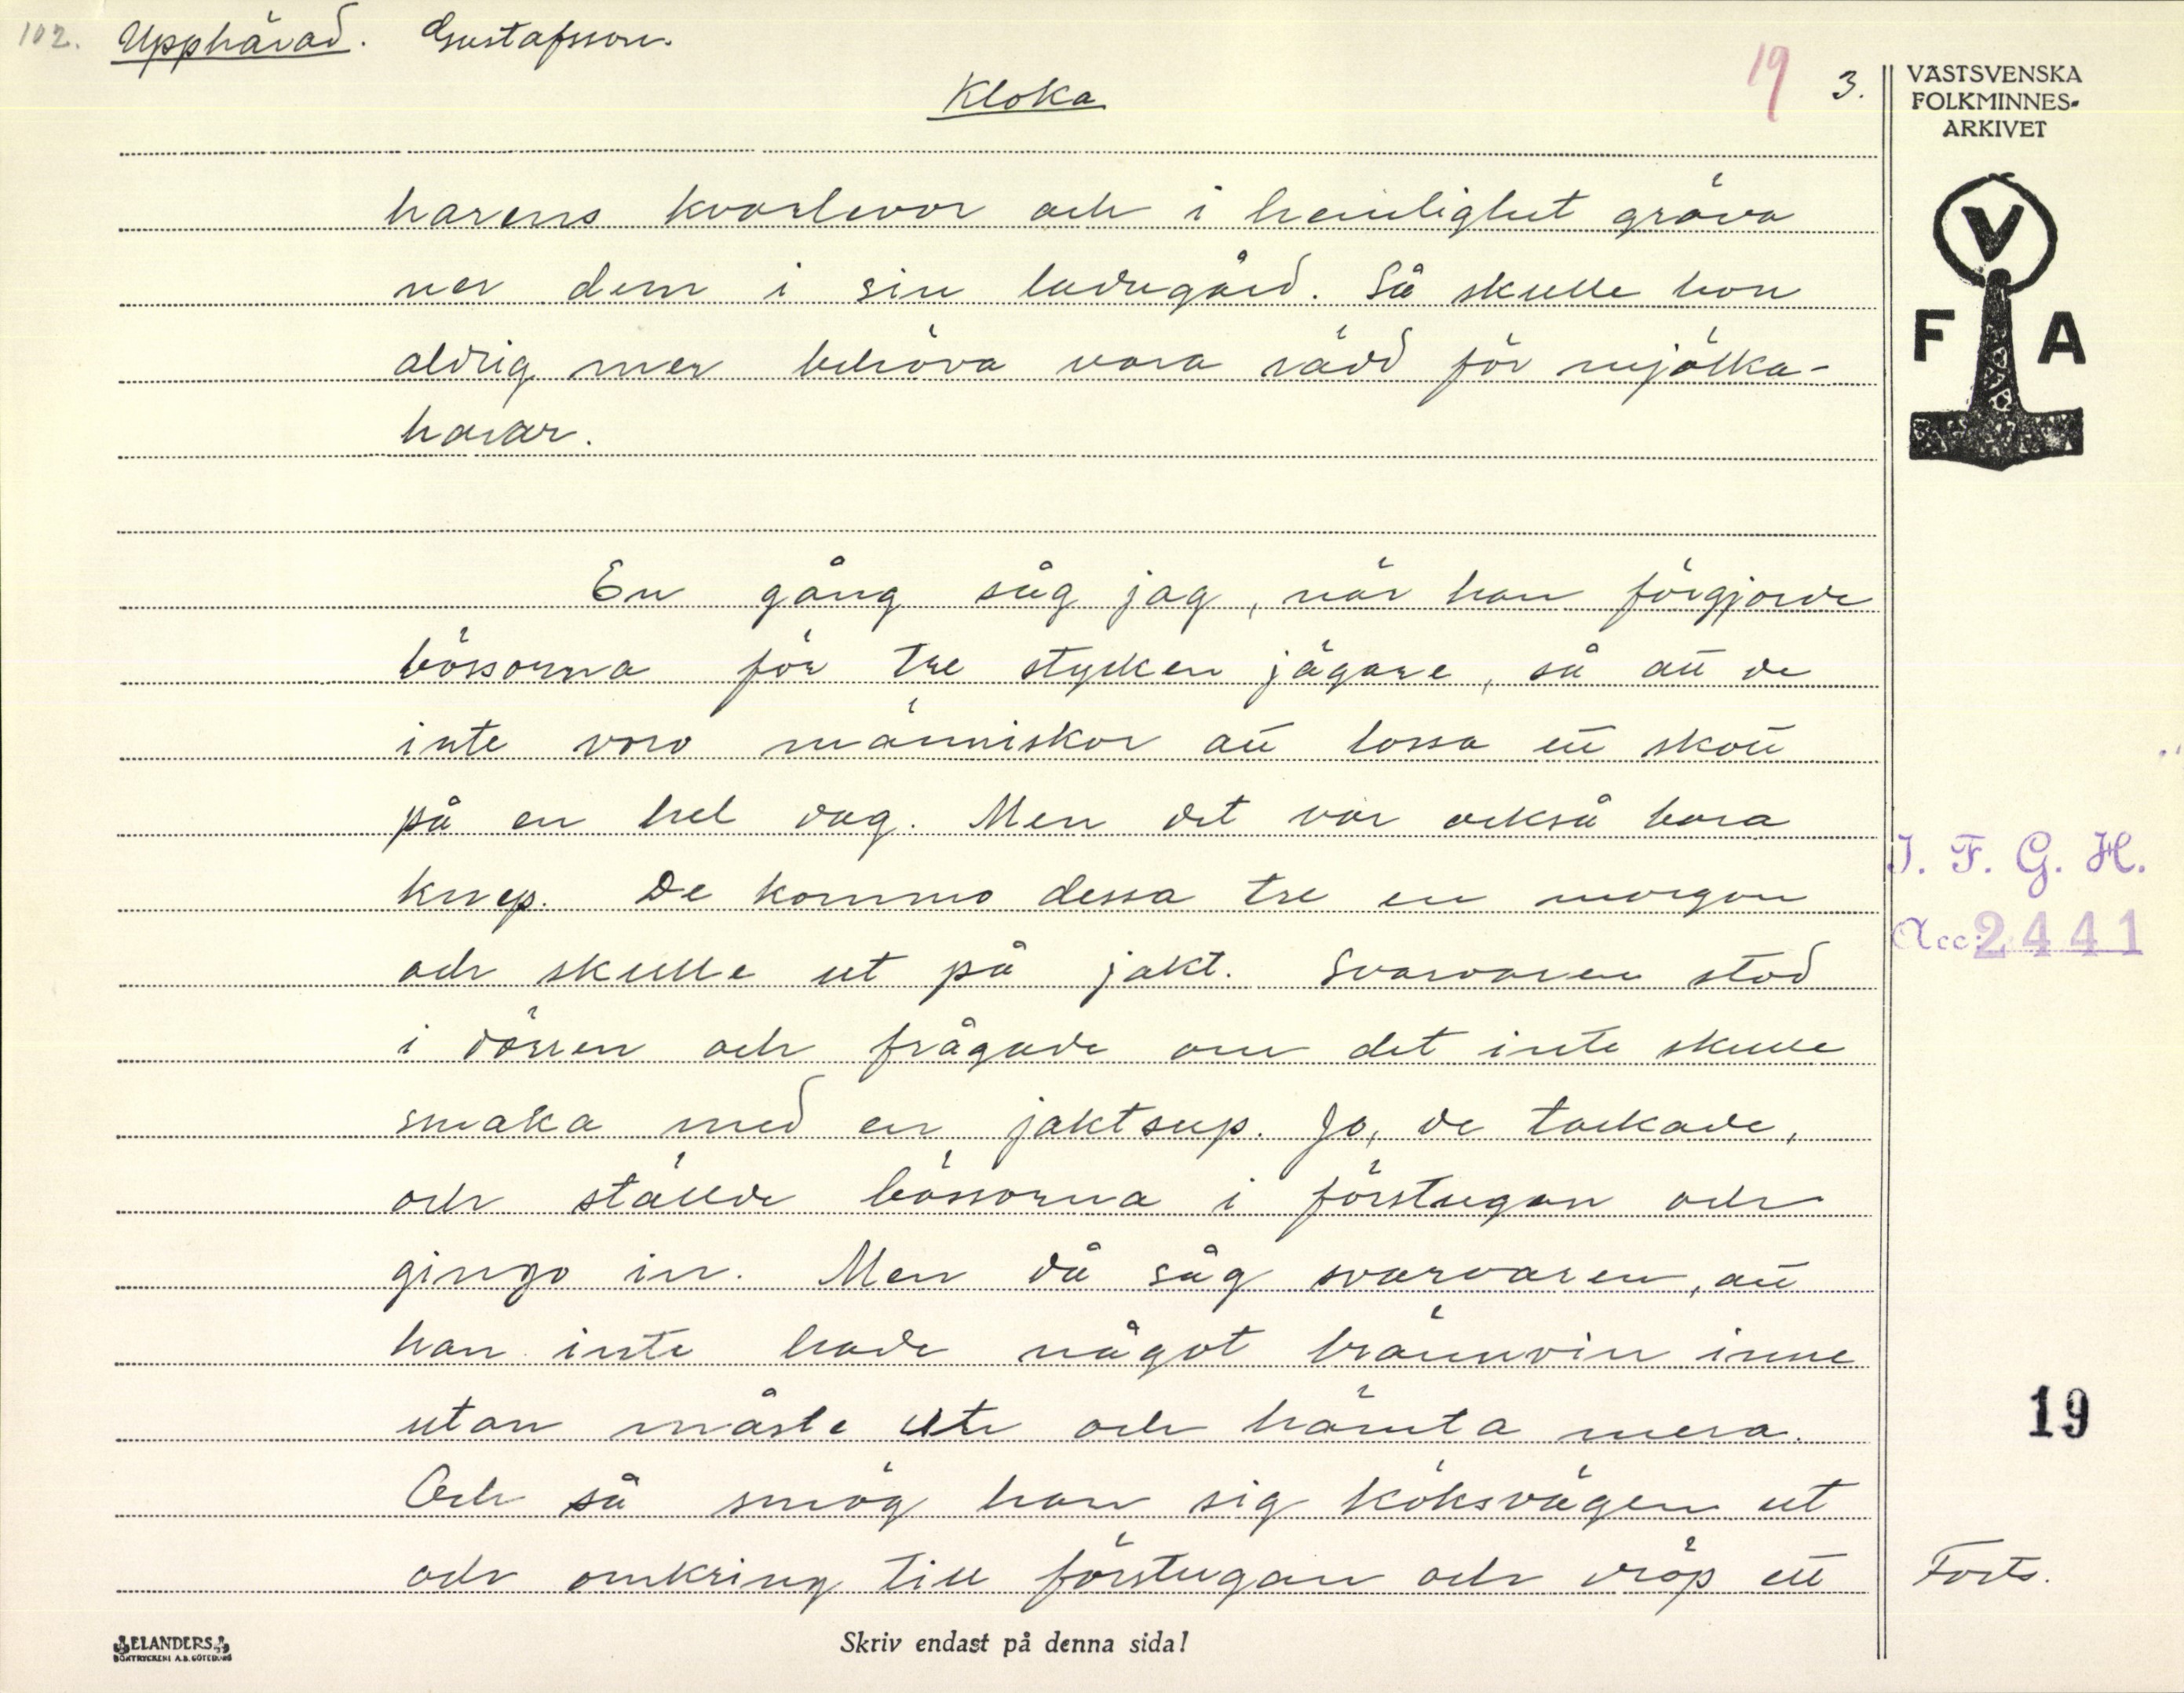 102. Upphärad. Gustafsson.
Kloka
19 3.
VÄSTSVENSKA
FOLKMINNES-
ARKIVET
V
F A
harens kvarlevor och i hemlighet gräva
ner dem i sin ladugård. Så skulle hon
aldrig mer behöva vara rädd för mjölka-
harar.
En gång såg jag, när han förgjorde
bössorna för tre stycken jägare, så att de
inte voro människor att lossa ett skott
på en hel dag. Men det var också bara
knep. De kommo dessa tre en morgon
och skulle ut på jakt. Svarvaren stod
i dörren och frågade om det inte skulle
smaka med en jaktsup. Jo, de tackade,
och ställde bössorna i förstugan och
gingo in. Men då såg svarvaren, att
han inte hade något brännvin inne
utan måste ut och hämta mera.
Och så smög han sig köksvägen ut
och omkring till förstugan och dröp ett
I. F. G. H.
Acc: 2441
19
Forts.
ELANDERS
BOKTRYCKERI A.B. GÖTEBORG
Skriv endast på denna sida!